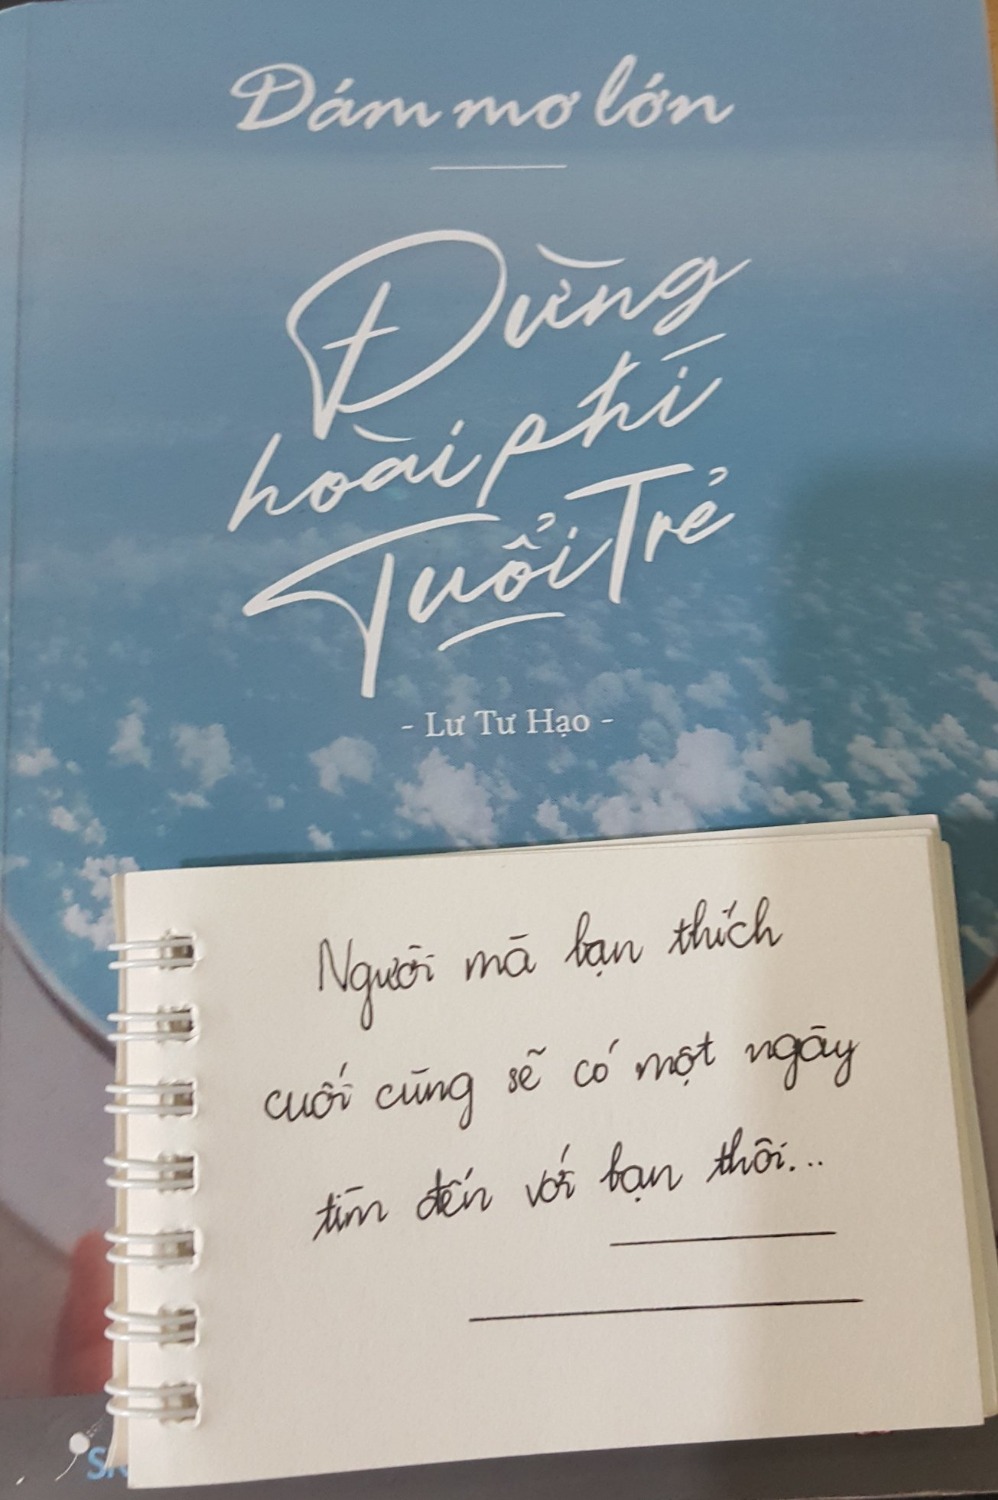 Dám mơ lớn
Đừng
hoài phí
Tuổi Trẻ
- Lư Tư Hạo -
Người mà bạn thích
cuối cùng sẽ có một ngày
tìm đến với bạn thôi...